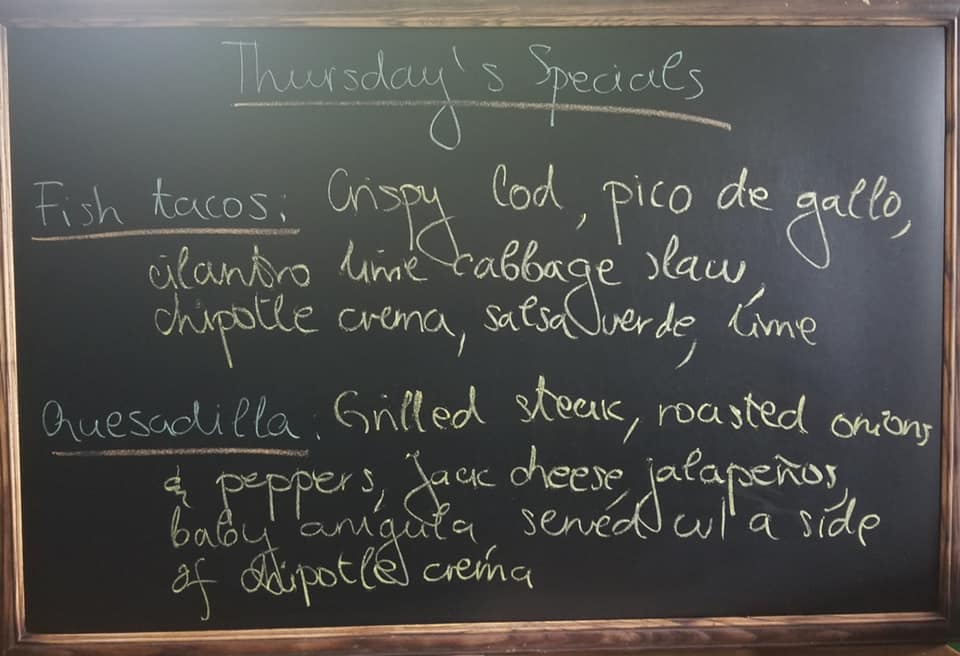 Thursday's Specials
Fish tacos: Crispy Cod, pico de gallo,
cilantro lime cabbage slaw,
chipotle crema, salsa verde, lime
Quesadilla: Grilled steak, roasted onions
& peppers, jack cheese, jalapeños,
baby arugula served w/ a side
of chipotle crema